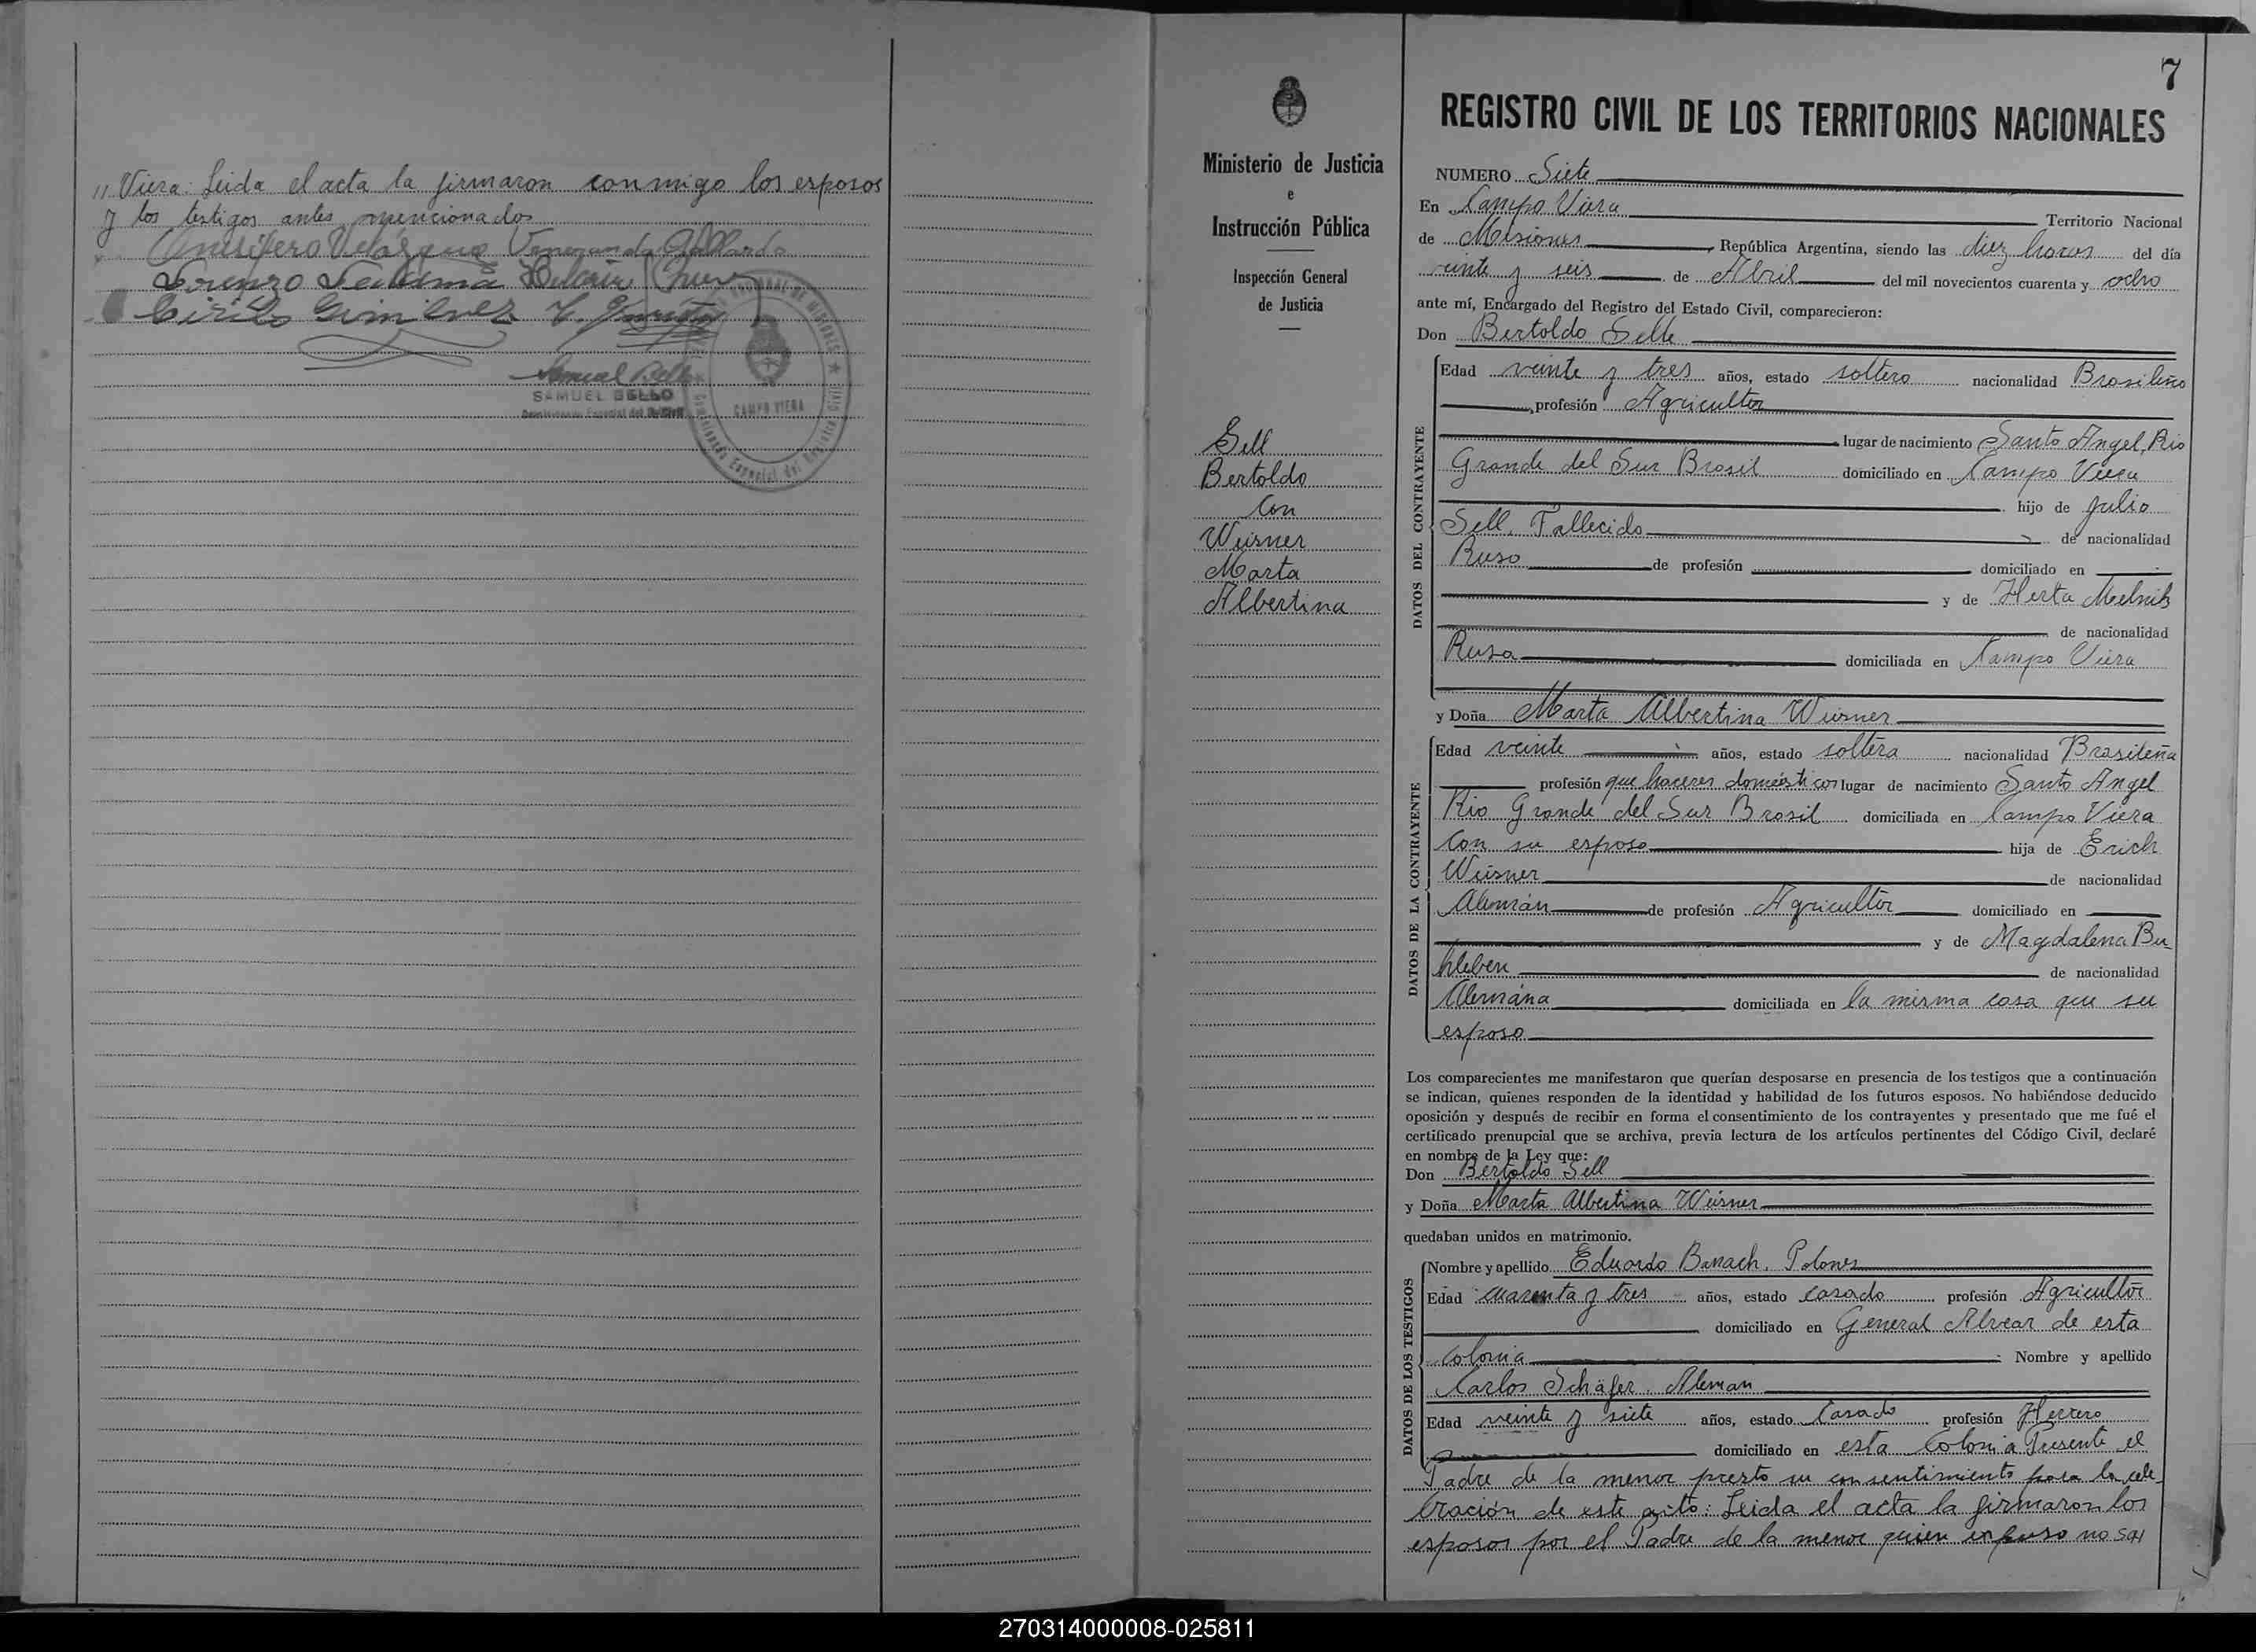 " Viera: Leida el acta la firmaron conmigo los esposos
y los testigos antes mencionados
Veneranda Gallardo
Lorenzo Ledesma
Cirilo Gimenez
Samuel Bello
SAMUEL BELLO
CAMPO VIERA
Ministerio de Justicia
e
Instrucción Pública
Inspección General
de Justicia
Sell
Bertoldo
Con
Weisner
Marta
Albertina
7
REGISTRO CIVIL DE LOS TERRITORIOS NACIONALES
NUMERO Siete
En Campo Viera Territorio Nacional
de Misiones, República Argentina, siendo las diez horas del día
veinte y seis de Abril del mil novecientos cuarenta y ocho
ante mí, Encargado del Registro del Estado Civil, comparecieron:
Don Bertoldo Selle
DATOS DEL CONTRAYENTE
Edad veinte y tres años, estado soltero nacionalidad Brasileño
, profesión Agricultor
lugar de nacimiento Santo Angel, Rio
Grande del Sur Brasil domiciliado en Campo Viera
hijo de Julio
Sell, Fallecido de nacionalidad
Ruso de profesión domiciliado en
y de Herta Melnik
de nacionalidad
Rusa domiciliada en Campo Viera
y Doña Marta Albertina Weisner
DATOS DE LA CONTRAYENTE
Edad veinte años, estado soltera nacionalidad Brasileña
profesión que haceres domésticos lugar de nacimiento Santo Angel
Rio Grande del Sur Brasil domiciliada en Campo Viera
Con su esposo hija de Erich
Weisner de nacionalidad
Alemán de profesión Agricultor domiciliado en
y de Magdalena Bu-
hleben de nacionalidad
Alemána domiciliada en la misma casa que su
esposo
Los comparecientes me manifestaron que querían desposarse en presencia de los testigos que a continuación
se indican, quienes responden de la identidad y habilidad de los futuros esposos. No habiéndose deducido
oposición y después de recibir en forma el consentimiento de los contrayentes y presentado que me fué el
certificado prenupcial que se archiva, previa lectura de los artículos pertinentes del Código Civil, declaré
en nombre de la Ley que:
Don Bertoldo Sell
y Doña Marta Albertina Weisner
quedaban unidos en matrimonio.
DATOS DE LOS TESTIGOS
Nombre y apellido Eduardo Banach. Polones
Edad cuarenta y tres años, estado casado profesión Agricultor
domiciliado en General Alvear de esta
Colonia Nombre y apellido
Carlos Schäfer. Aleman
Edad veinte y siete años, estado Casado profesión Herrero
domiciliado en esta Colonia Presente el
Padre de la menor presto su consentimiento para la cele-
bración de este acto: Leida el acta la firmaron los
esposos por el Padre de la menor quien expuso no sa//
270314000008-025811